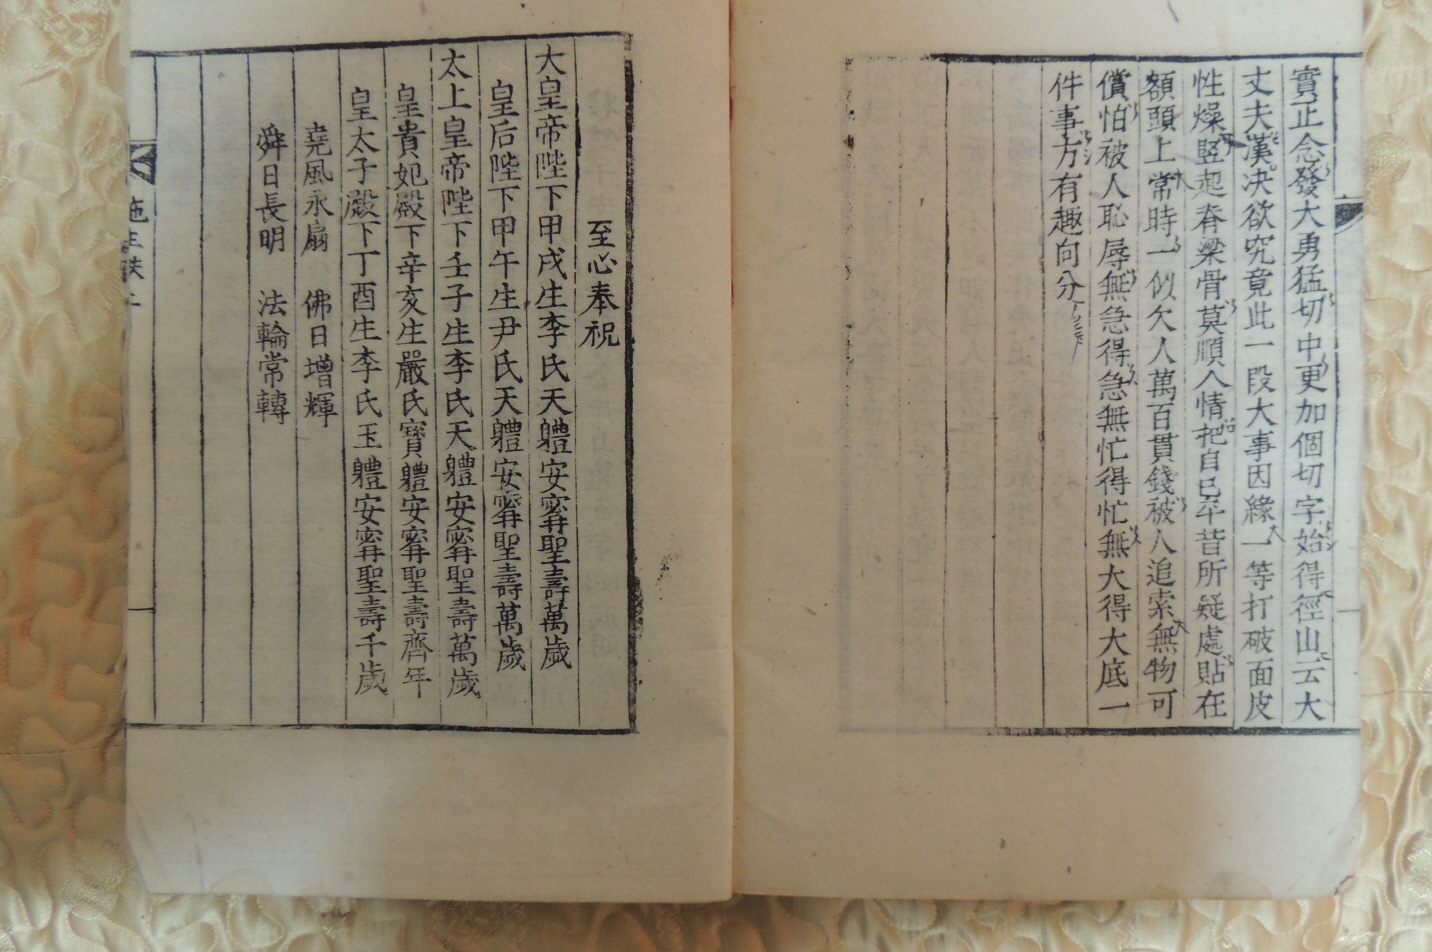 實正念發大勇猛切中更加個切字始得徑山云大
丈夫漢决欲究竟此一段大事因緣一等打破面皮
性燥竪起脊梁骨莫順人情把自己平昔所疑處貼在
額頭上常時一似欠人萬百貫錢被人追索無物可
償怕被人恥辱無急得急無忙得忙無大得大底一
件事方有趣向分
至心奉祝
大皇帝陛下甲戌生李氏天軆安寗聖壽萬歲
皇后陛下甲午生尹氏天軆安寗聖壽萬歲
太上皇帝陛下壬子生李氏天軆安寗聖壽萬歲
皇貴妃殿下辛亥生嚴氏寶軆安寗聖壽齊年
皇太子殿下丁酉生李氏玉軆安寗聖壽千歲
堯風永扇 佛日增輝
舜日長明 法輪常轉